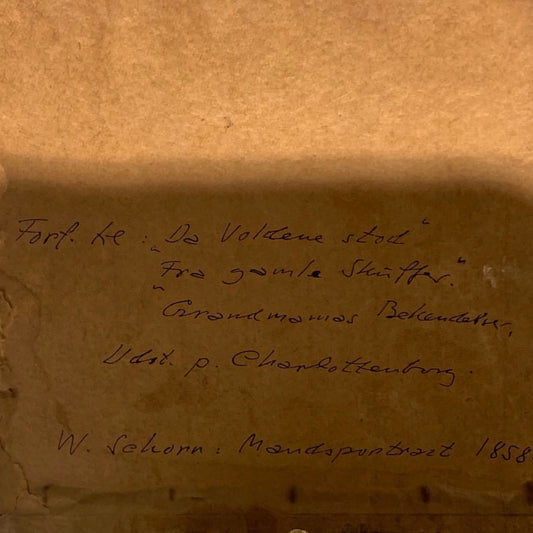 Forf. til: „Da Voldene stod“
„Fra gamle Skuffer.“
„Grandmamas Bekendelser.
Udst. p. Charlottenborg.
W. Schorn: Mandsportræt 1858